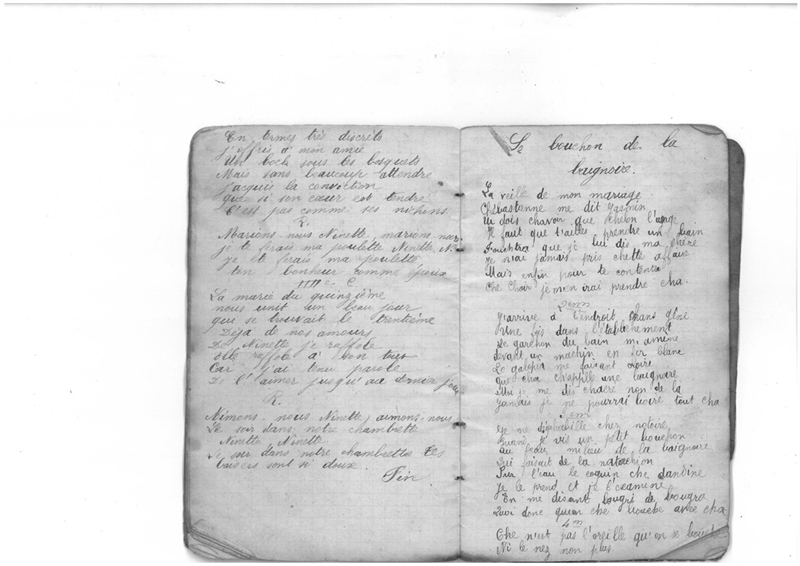 En termes très discrets
j'offris à mon amie
Un bock sous les bosquets
Mais sans beaucoup attendre
J'acquis la conviction
Que si son cœur est tendre
C'est pas comme ses nichons
R.
Marions-nous Ninette, marions nous
je te ferais ma poulette Ninette, N.
je te ferais ma poulette
ton bonheur comme époux
IIIme C
La mairie du quinzième
nous unit un beau jour
qui se trouvait le trentième
Déjà de nos amours
De Ninette je raffole
Elle raffole à son tour
Car j'ai tenu parole
De l'aimer jusqu'au dernier jour
R.
Aimons-nous Ninette, aimons-nous
Le soir dans notre chambrette
Ninette Ninette
Le soir dans notre chambrette les
baisers sont si doux
Fin
Le bouchon de la
baignoire.
La veille de mon mariage
me dit Jasmin
Tu dois chavoir que chelon l'usage
Il faut que t'ailles prendre un bain
Fouchtra que je lui dis ma chère
Je n'ai jamais pris chette affaire
Mais enfin pour te contenter
Che choir je m'en irai prendre cha
2em
J'arrive à l'endroit chans gêne
Une fois dans l'établichement
Le garchon du bain m'amène
Devant un machin en fer blanc
Le me faisant croire
Que cha ch'appelle une baignoire
Moi je me dis chacré non de la
Jamais je ne pourrai boire tout cha
3em
En me dijhabille cher notoire
Quand je vis un petit bouchon
Au beau milieu de la baignoire
Qui faisait de la natachion
Sur l'eau le coquin che dandine
Je le prend et je l'examine
En me disant bougré de bougra
Quoi donc qu'on che bouche avec cha
4m
Che n'est pas l'oreille qu'on se bouche
Ni le nez non plus